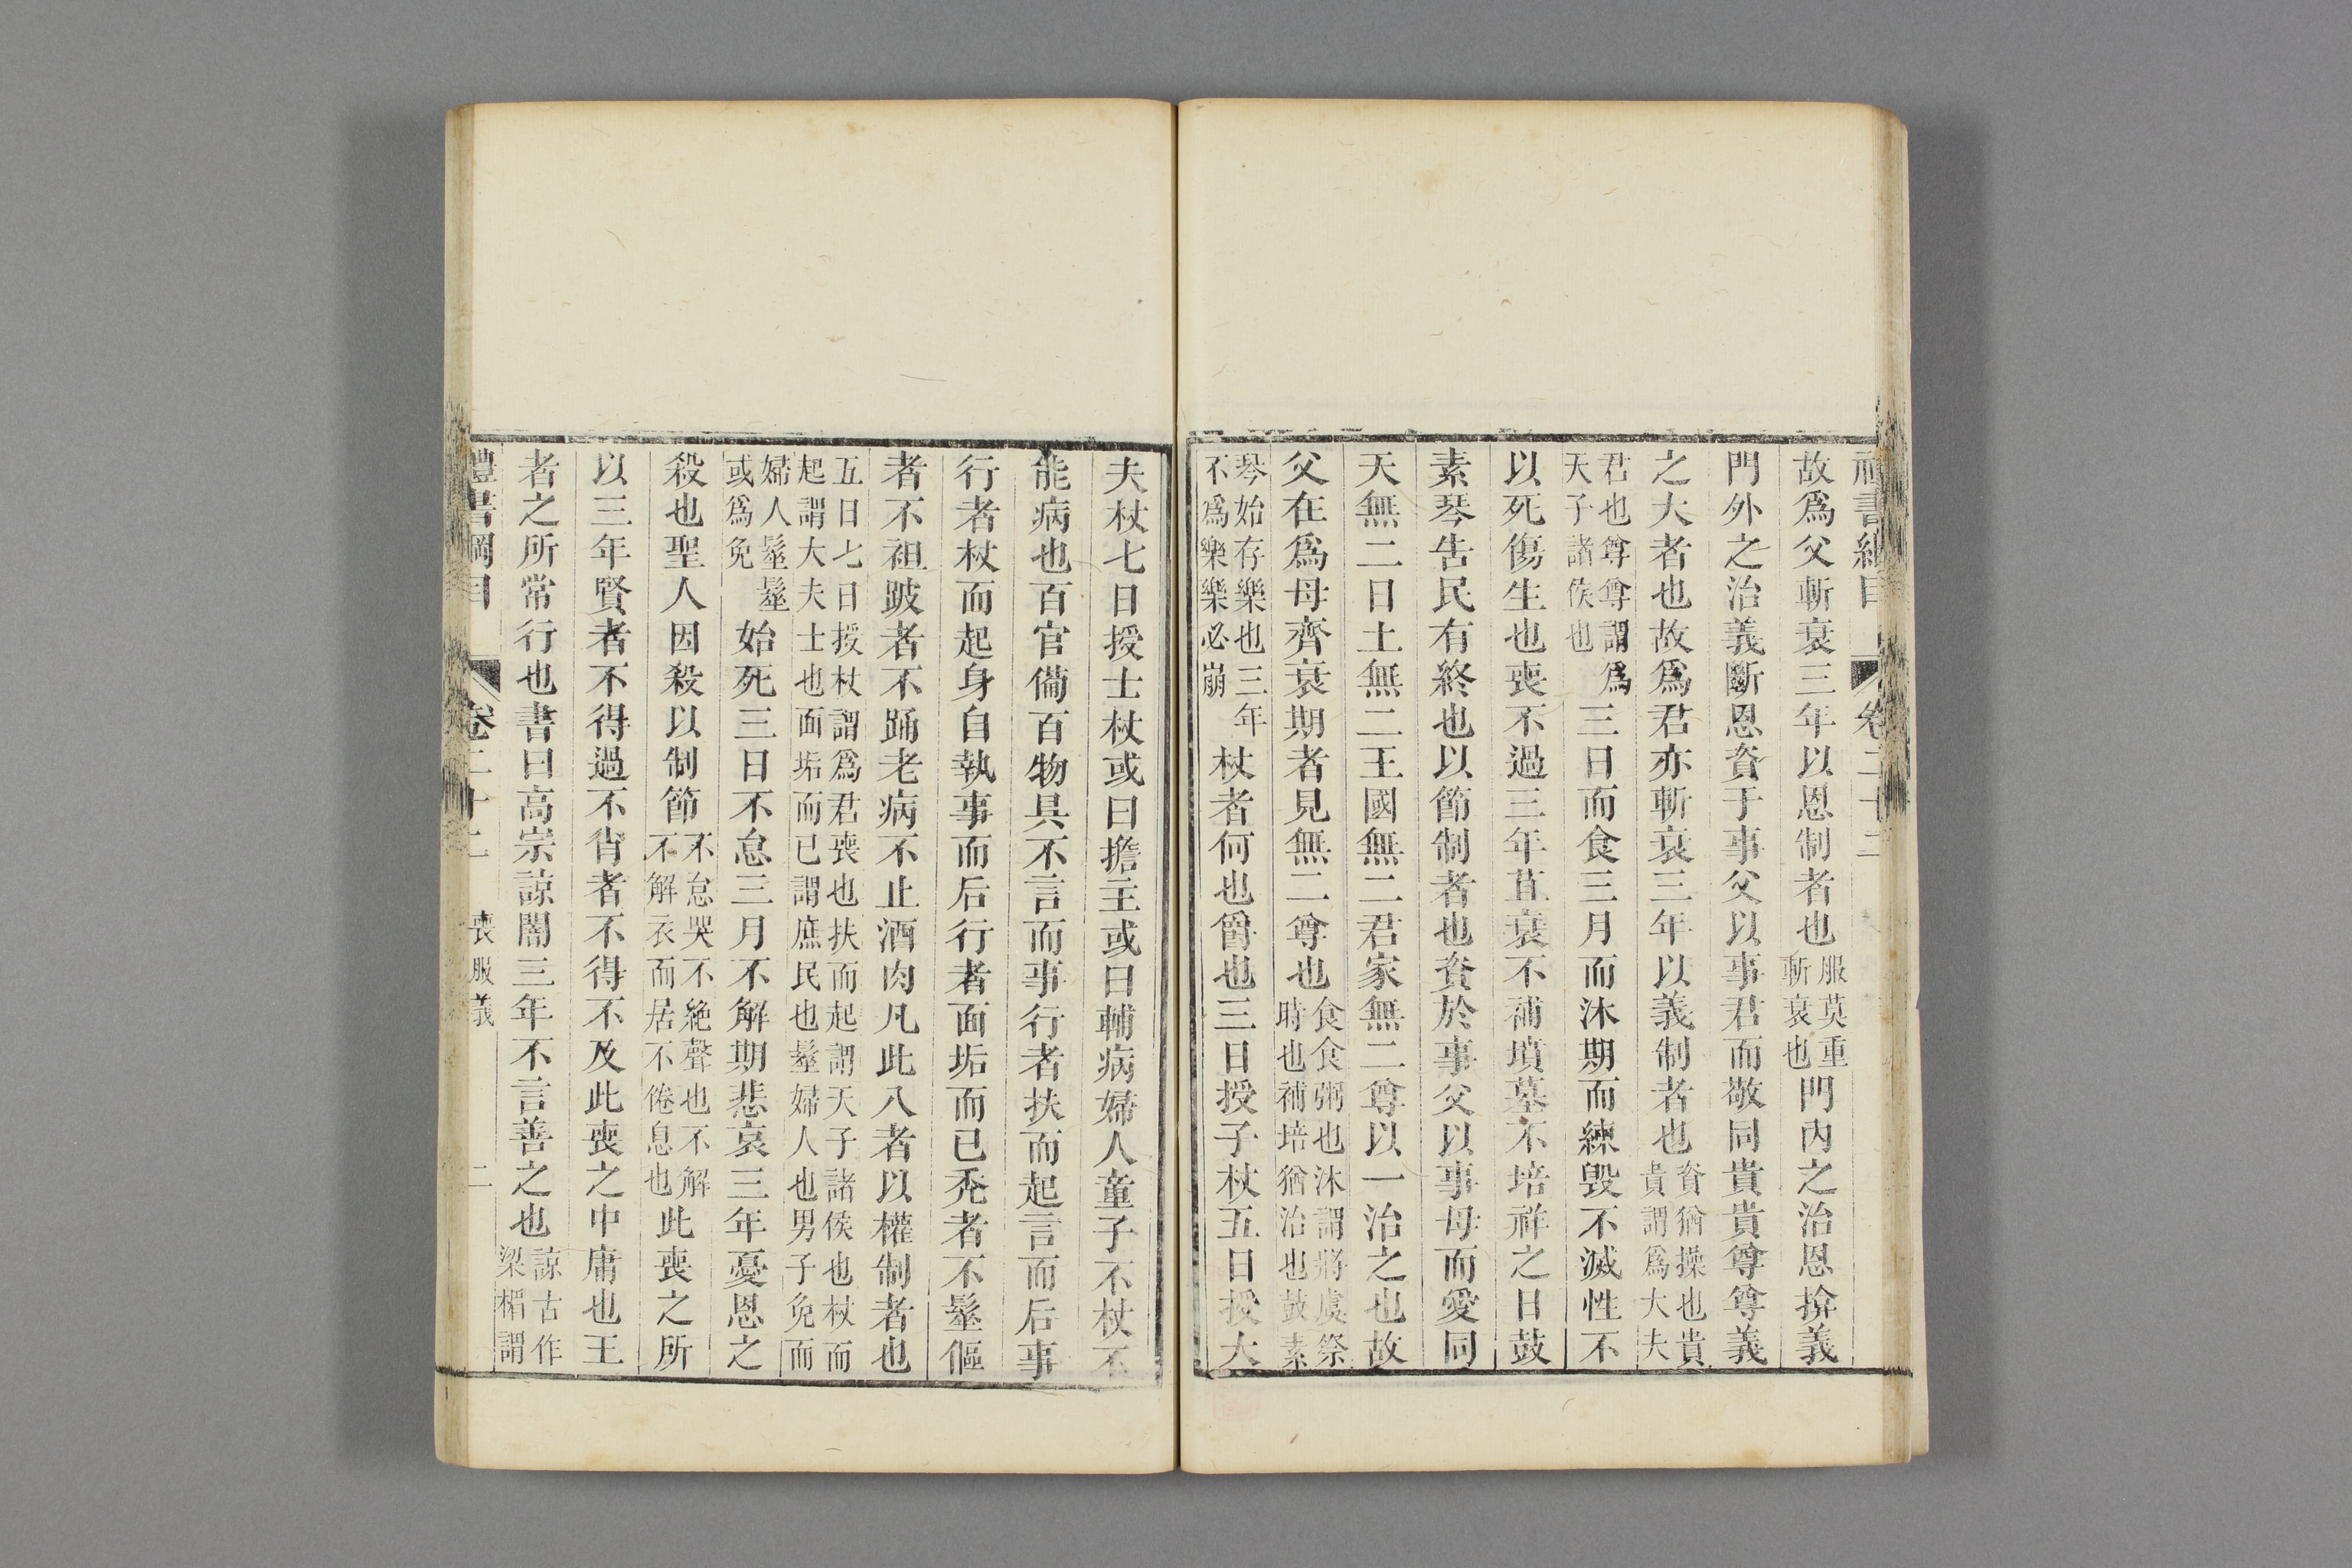 禮書綱目 卷二十二
故爲父斬衰三年以恩制者也服莫重斬衰也門內之治恩揜義
門外之治義斷恩資于事父以事君而敬同貴貴尊尊義
之大者也故爲君亦斬衰三年以義制者也資猶操也貴貴謂爲大夫
君也尊尊謂爲天子諸侯也三日而食三月而沐期而練毀不滅性不
以死傷生也喪不過三年苴衰不補墳墓不培祥之日鼓
素琴告民有終也以節制者也資於事父以事母而愛同
天無二日土無二王國無二君家無二尊以一治之也故
父在爲母齊衰期者見無二尊也食食粥也沐謂將虞祭時也補培猶治也鼓素
琴始存樂也三年不爲樂樂必崩杖者何也爵也三日授子杖五日授大
夫杖七日授士杖或曰擔主或曰輔病婦人童子不杖不
能病也百官備百物具不言而事行者扶而起言而后事
行者杖而起身自執事而后行者面垢而已禿者不髽傴
者不袒跛者不踊老病不止酒肉凡此八者以權制者也
五日七日授杖謂爲君喪也扶而起謂天子諸侯也杖而起謂大夫士也面垢而已謂庶民也髽婦人也男子免而
婦人髽髽或爲免始死三日不怠三月不解期悲哀三年憂恩之
殺也聖人因殺以制節不怠哭不絶聲也不解不解衣而居不倦息也此喪之所
以三年賢者不得過不肖者不得不及此喪之中庸也王
者之所常行也書曰高宗諒闇三年不言善之也諒古作梁楣謂
禮書綱目 卷二十二 喪服義 二